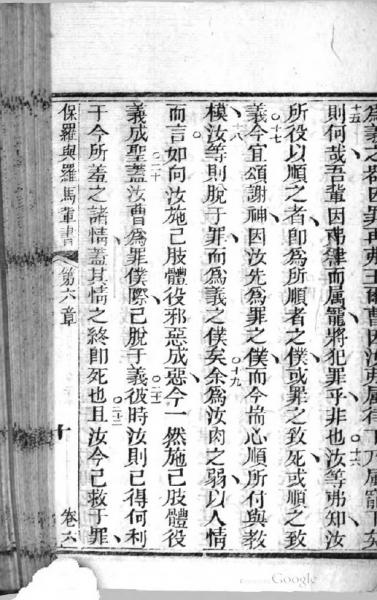 為義之器因罪再弗王爾曹因汝弗屬律下乃屬寵下矣
十五則何哉吾輩因弗律而屬寵將犯罪乎非也十六汝等弗知汝
所役以順之者即為所順者之僕或罪之致死或順之致
義十七今宜頌謝神因汝先為罪之僕而今揣心順所付與教
模十八汝等則脫于罪而為義之僕矣十九余為汝肉之弱以人情
而言如向汝施己肢體役邪惡成惡今一然施己肢體役
義成聖二十蓋汝曹為罪僕際已脫于義二一彼時汝則已得何利
于今所羞之諸情蓋其情之終即死也二二且汝今已救于罪
保羅與羅馬輩書 第六章 十 卷六
Google